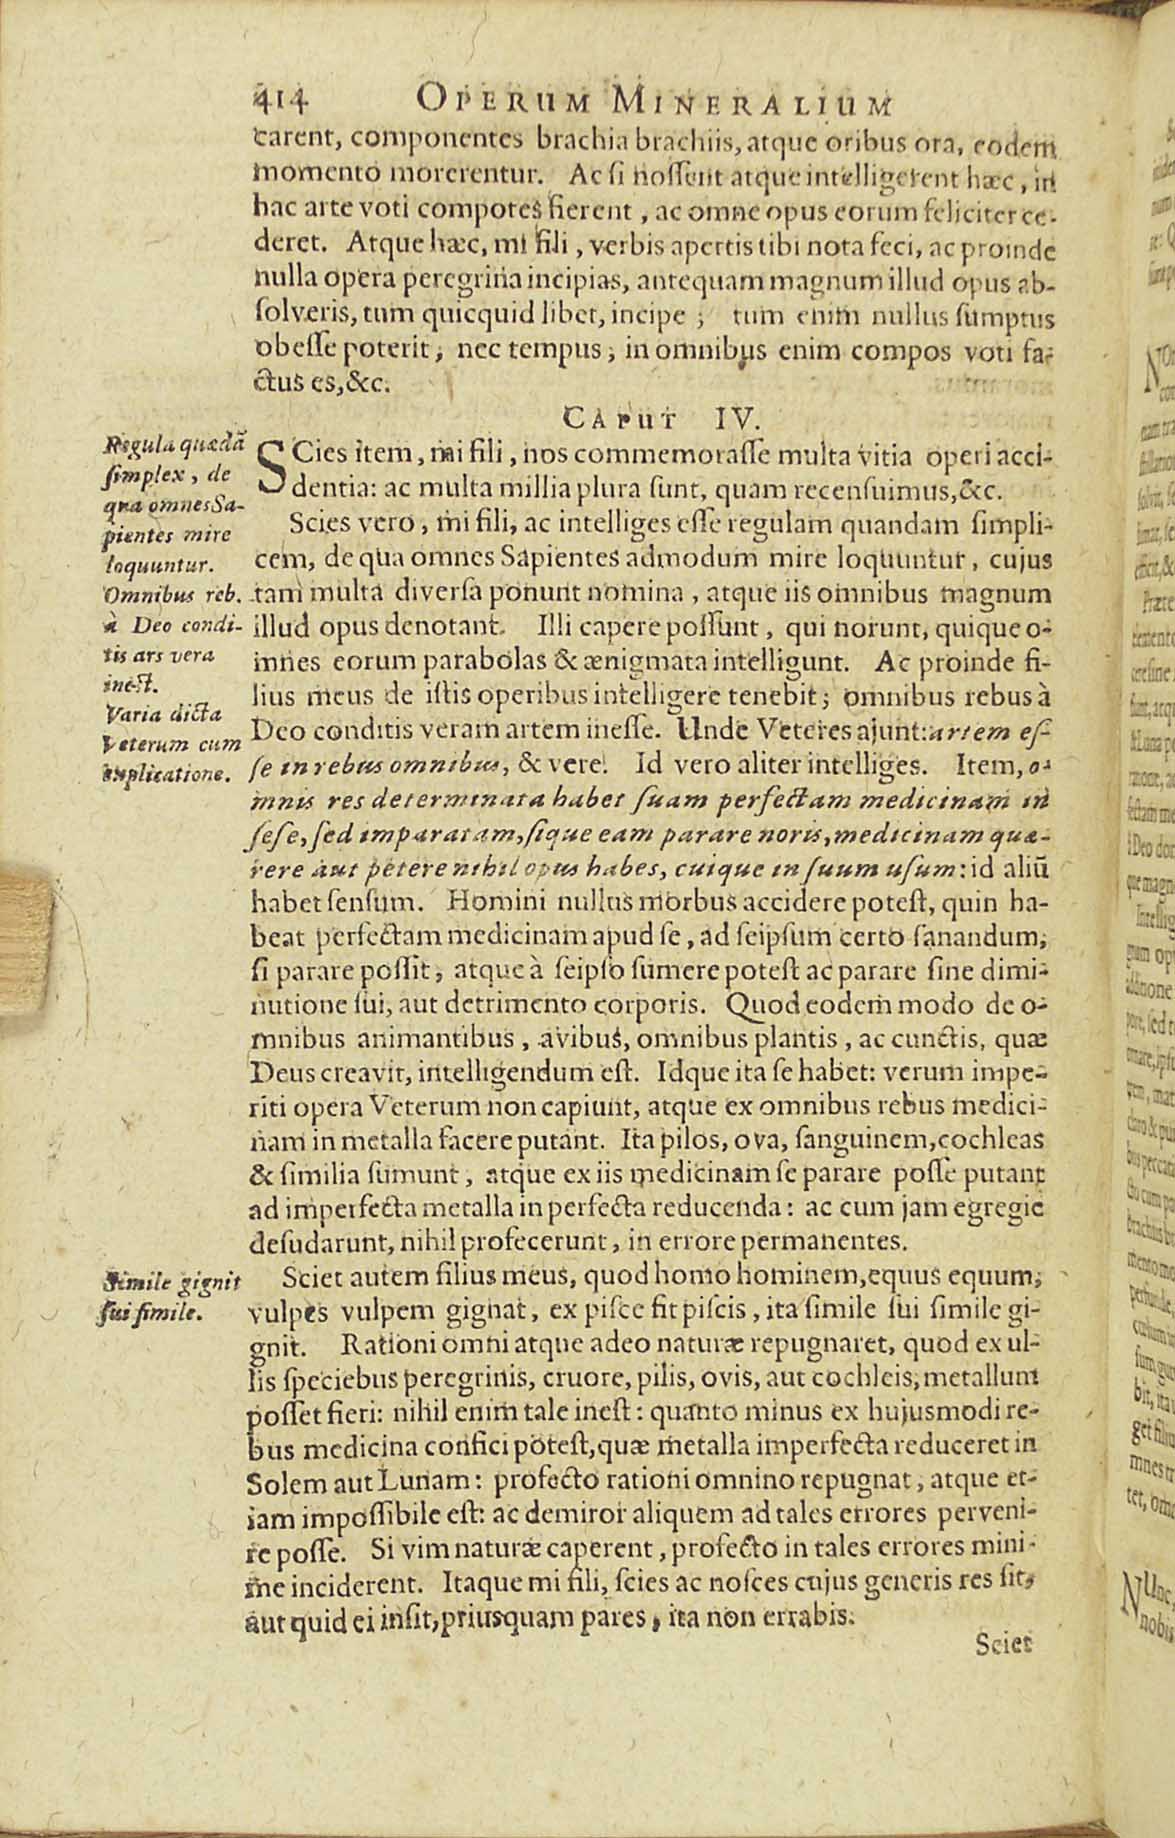 414 OPERUM MINERALIUM
carent, componentes brachia brachiis, atque oribus ora, eodem
momento morerentur. Ac si nossent atque intelligerent hæc, in
hac arte voti compotes fierent, ac omne opus eorum feliciter ce-
deret. Atque hæc, mi fili, verbis apertis tibi nota feci, ac proinde
nulla opera peregrina incipias, antequam magnum illud opus ab-
solveris, tum quicquid libet, incipe; tum enim nullus sumptus
obesse poterit, nec tempus; in omnibus enim compos voti fa-
ctus es, &c.
CAPUT IV.
SCies item, mi fili, nos commemorasse multa vitia operi acci-
dentia: ac multa millia plura sunt, quam recensuimus, &c.
Scies vero, mi fili, ac intelliges esse regulam quandam simpli-
cem, de qua omnes Sapientes admodum mire loquuntur, cujus
tam multa diversa ponunt nomina, atque iis omnibus magnum
illud opus denotant. Illi capere possunt, qui norunt, quique o-
mnes eorum parabolas & ænigmata intelligunt. Ac proinde fi-
lius meus de istis operibus intelligere tenebit; omnibus rebus à
Deo conditis veram artem inesse. Unde Veteres ajunt: artem es-
se in rebus omnibus, & vere. Id vero aliter intelliges. Item, o-
mnis res determinata habet suam perfectam medicinam in
sese, sed imparatam, sique eam parare noris, medicinam quæ-
rere aut petere nihil opus habes, cuique in suum usum: id aliū
habet sensum. Homini nullus morbus accidere potest, quin ha-
beat perfectam medicinam apud se, ad seipsum certo sanandum,
si parare possit, atque à seipso sumere potest ac parare sine dimi-
nutione sui, aut detrimento corporis. Quod eodem modo de o-
mnibus animantibus, avibus, omnibus plantis, ac cunctis, quæ
Deus creavit, intelligendum est. Idque ita se habet: verum impe-
riti opera Veterum non capiunt, atque ex omnibus rebus medici-
nam in metalla facere putant. Ita pilos, ova, sanguinem, cochleas
& similia sumunt, atque ex iis medicinam se parare posse putant
ad imperfecta metalla in perfecta reducenda: ac cum jam egregie
desudarunt, nihil profecerunt, in errore permanentes.
Sciet autem filius meus, quod homo hominem, equus equum,
vulpes vulpem gignat, ex pisce fit piscis, ita simile sui simile gi-
gnit. Rationi omni atque adeo naturæ repugnaret, quod ex ul-
lis speciebus peregrinis, cruore, pilis, ovis, aut cochleis, metallum
posset fieri: nihil enim tale inest: quanto minus ex hujusmodi re-
bus medicina confici potest, quæ metalla imperfecta reduceret in
Solem aut Lunam: profecto rationi omnino repugnat, atque et-
iam impossibile est: ac demiror aliquem ad tales errores perveni-
re posse. Si vim naturæ caperent, profecto in tales errores mini-
me inciderent. Itaque mi fili, scies ac nosces cujus generis res sit,
aut quid ei insit, priusquam pares, ita non errabis.
Sciet
Regula quædā
simplex, de
qua omnes Sa-
pientes mire
loquuntur.
Omnibus reb.
à Deo condi-
tis ars vera
inest.
Varia dicta
Veterum cum
explicatione.
Simile gignit
sui simile.